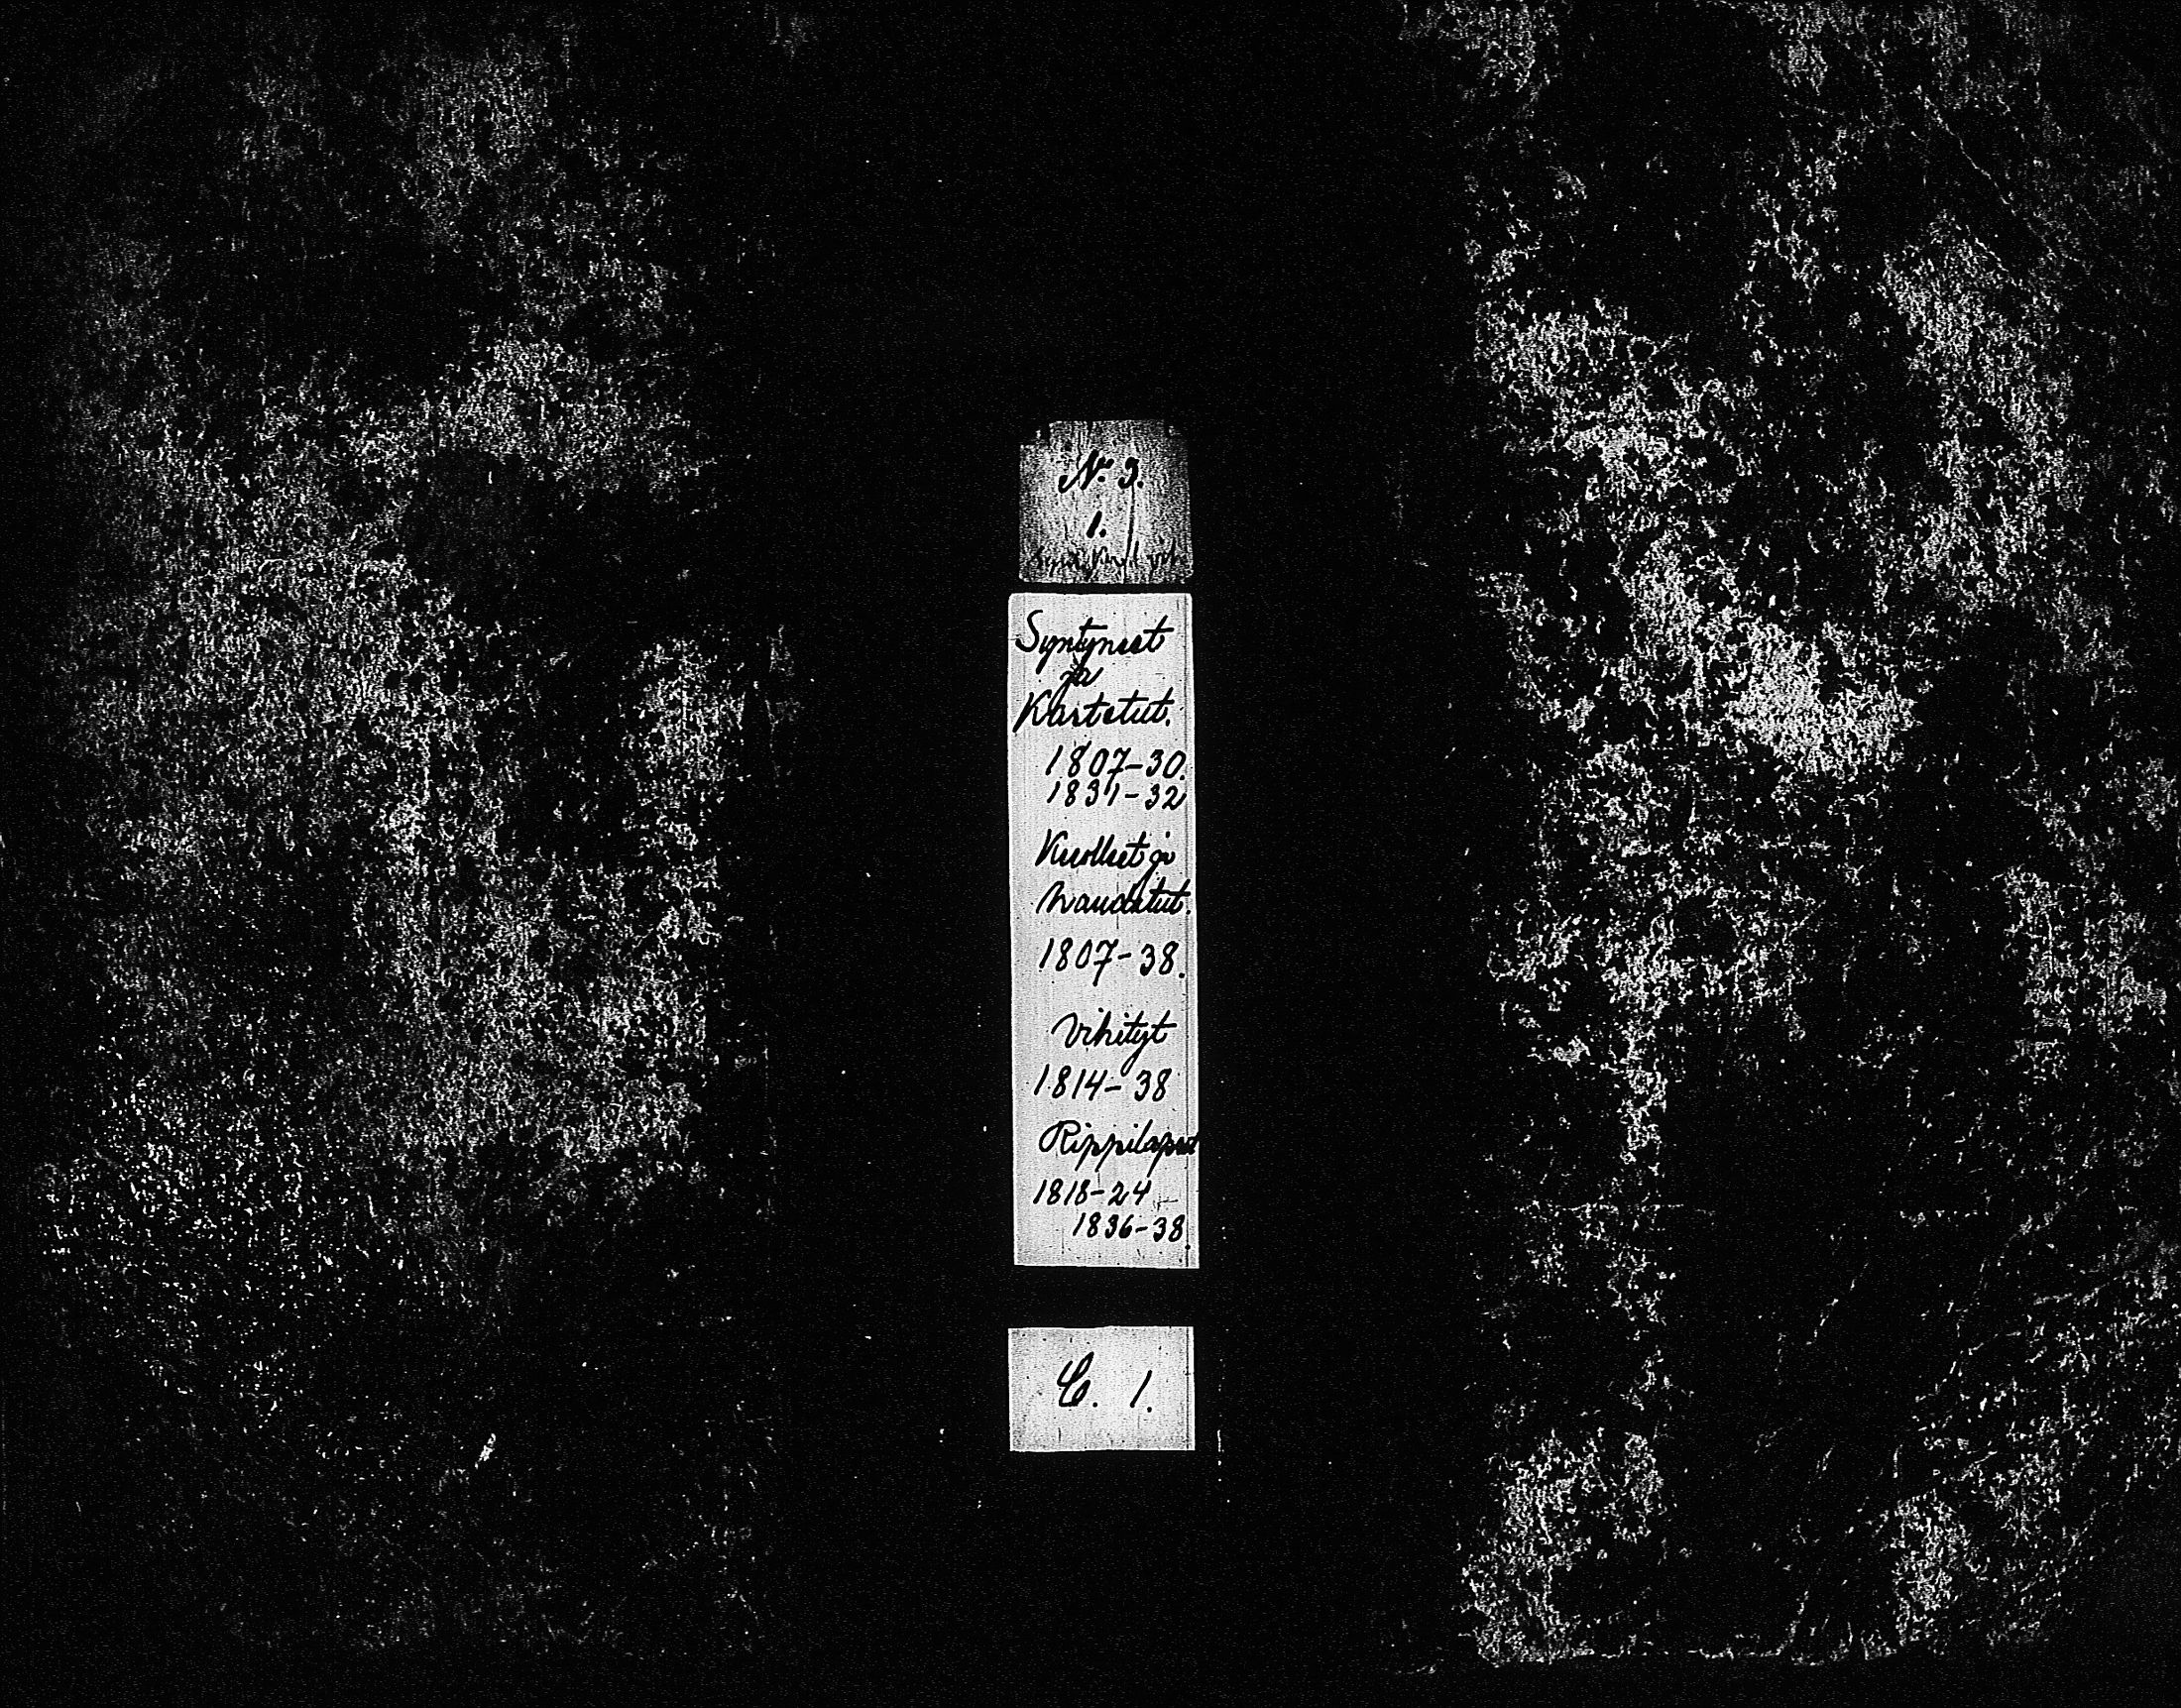 N:o 3.
1.
Syntyneet
ja
Kastetut.
1807-30.
1831-32
Kuolleet ja
haudatut.
1807-38.
Vihityt
1814-38
Rippilapset
1818-24
1836-38.
C. 1.